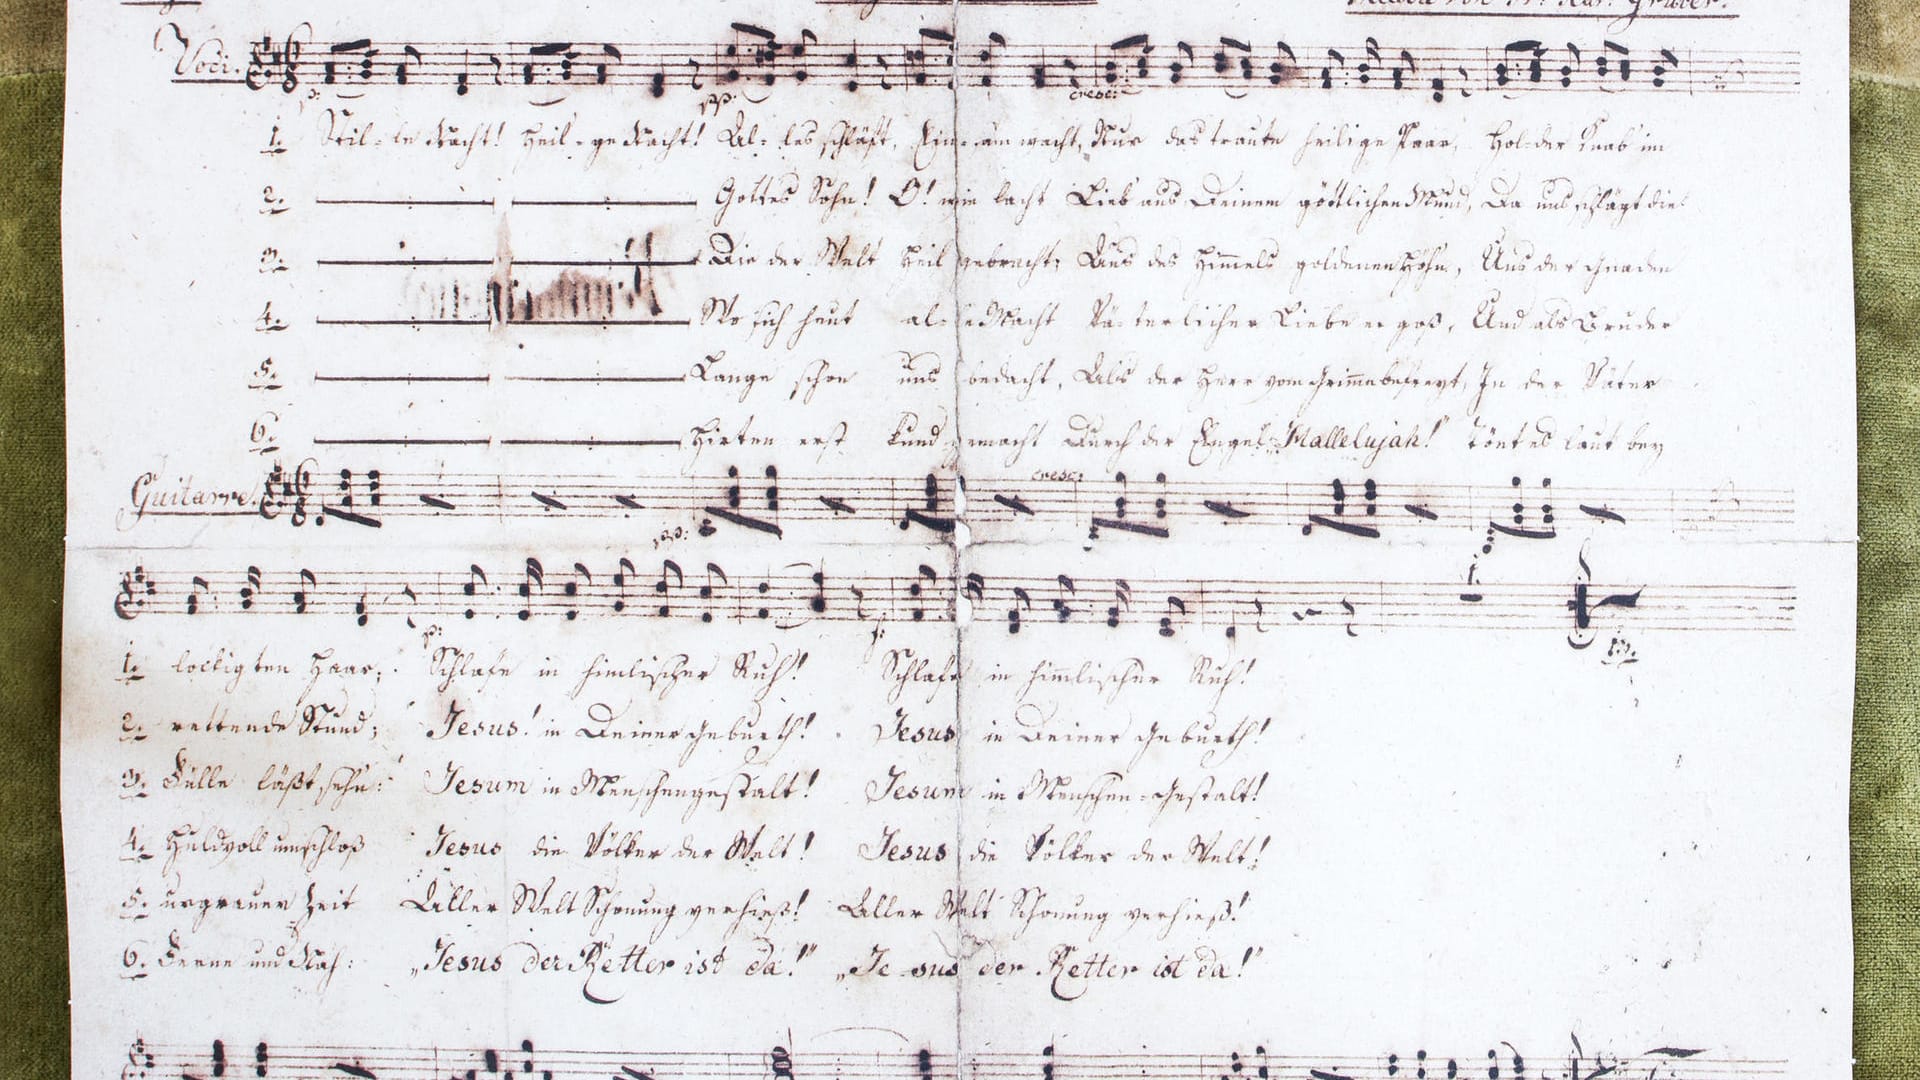 Voci.
p: pp. cresc:
1. Stil-le Nacht! Heil-ge Nacht! Al-les schläft, Einsam wacht, Nur das traute heilige Paar, Hol-der Knab im
2. Gottes Sohn! O! wie lacht Lieb aus Deinem göttlichen Mund, Da uns schlägt die
3. Die der Welt Heil gebracht, Aus des Himmels goldenen Höhn, Uns der Gnaden
4. Wo sich heut al-le Macht Vä-terlicher Liebe ergoß, Und als Bruder
5. Lange schon uns bedacht, Als der Herr vom Grimme befreyt, In der Väter
6. Hirten erst kundgemacht Durch der Engel "Hallelujah!" Tönt es laut bey
Guitarre.
pp: cresc:
p: f:
1. lockigten Haar; Schlafe in himlischer Ruh! Schlafe in himmlischer Ruh!
2. rettende Stund; Jesus! in Deiner Geburth! Jesus in Deiner Geburth!
3. Fülle läßt sehn: Jesum in Menschengestalt! Jesum in Menschen-Gestalt!
4. Huldvoll umschloß Jesus die Völker der Welt! Jesus die Völker der Welt!
5. urgrauer Zeit Aller Welt Schonung verhieß! Aller Welt Schonung verhieß!
6. Ferne und Nah: „Jesus der Retter ist da!" „Jesus der Retter ist da!"